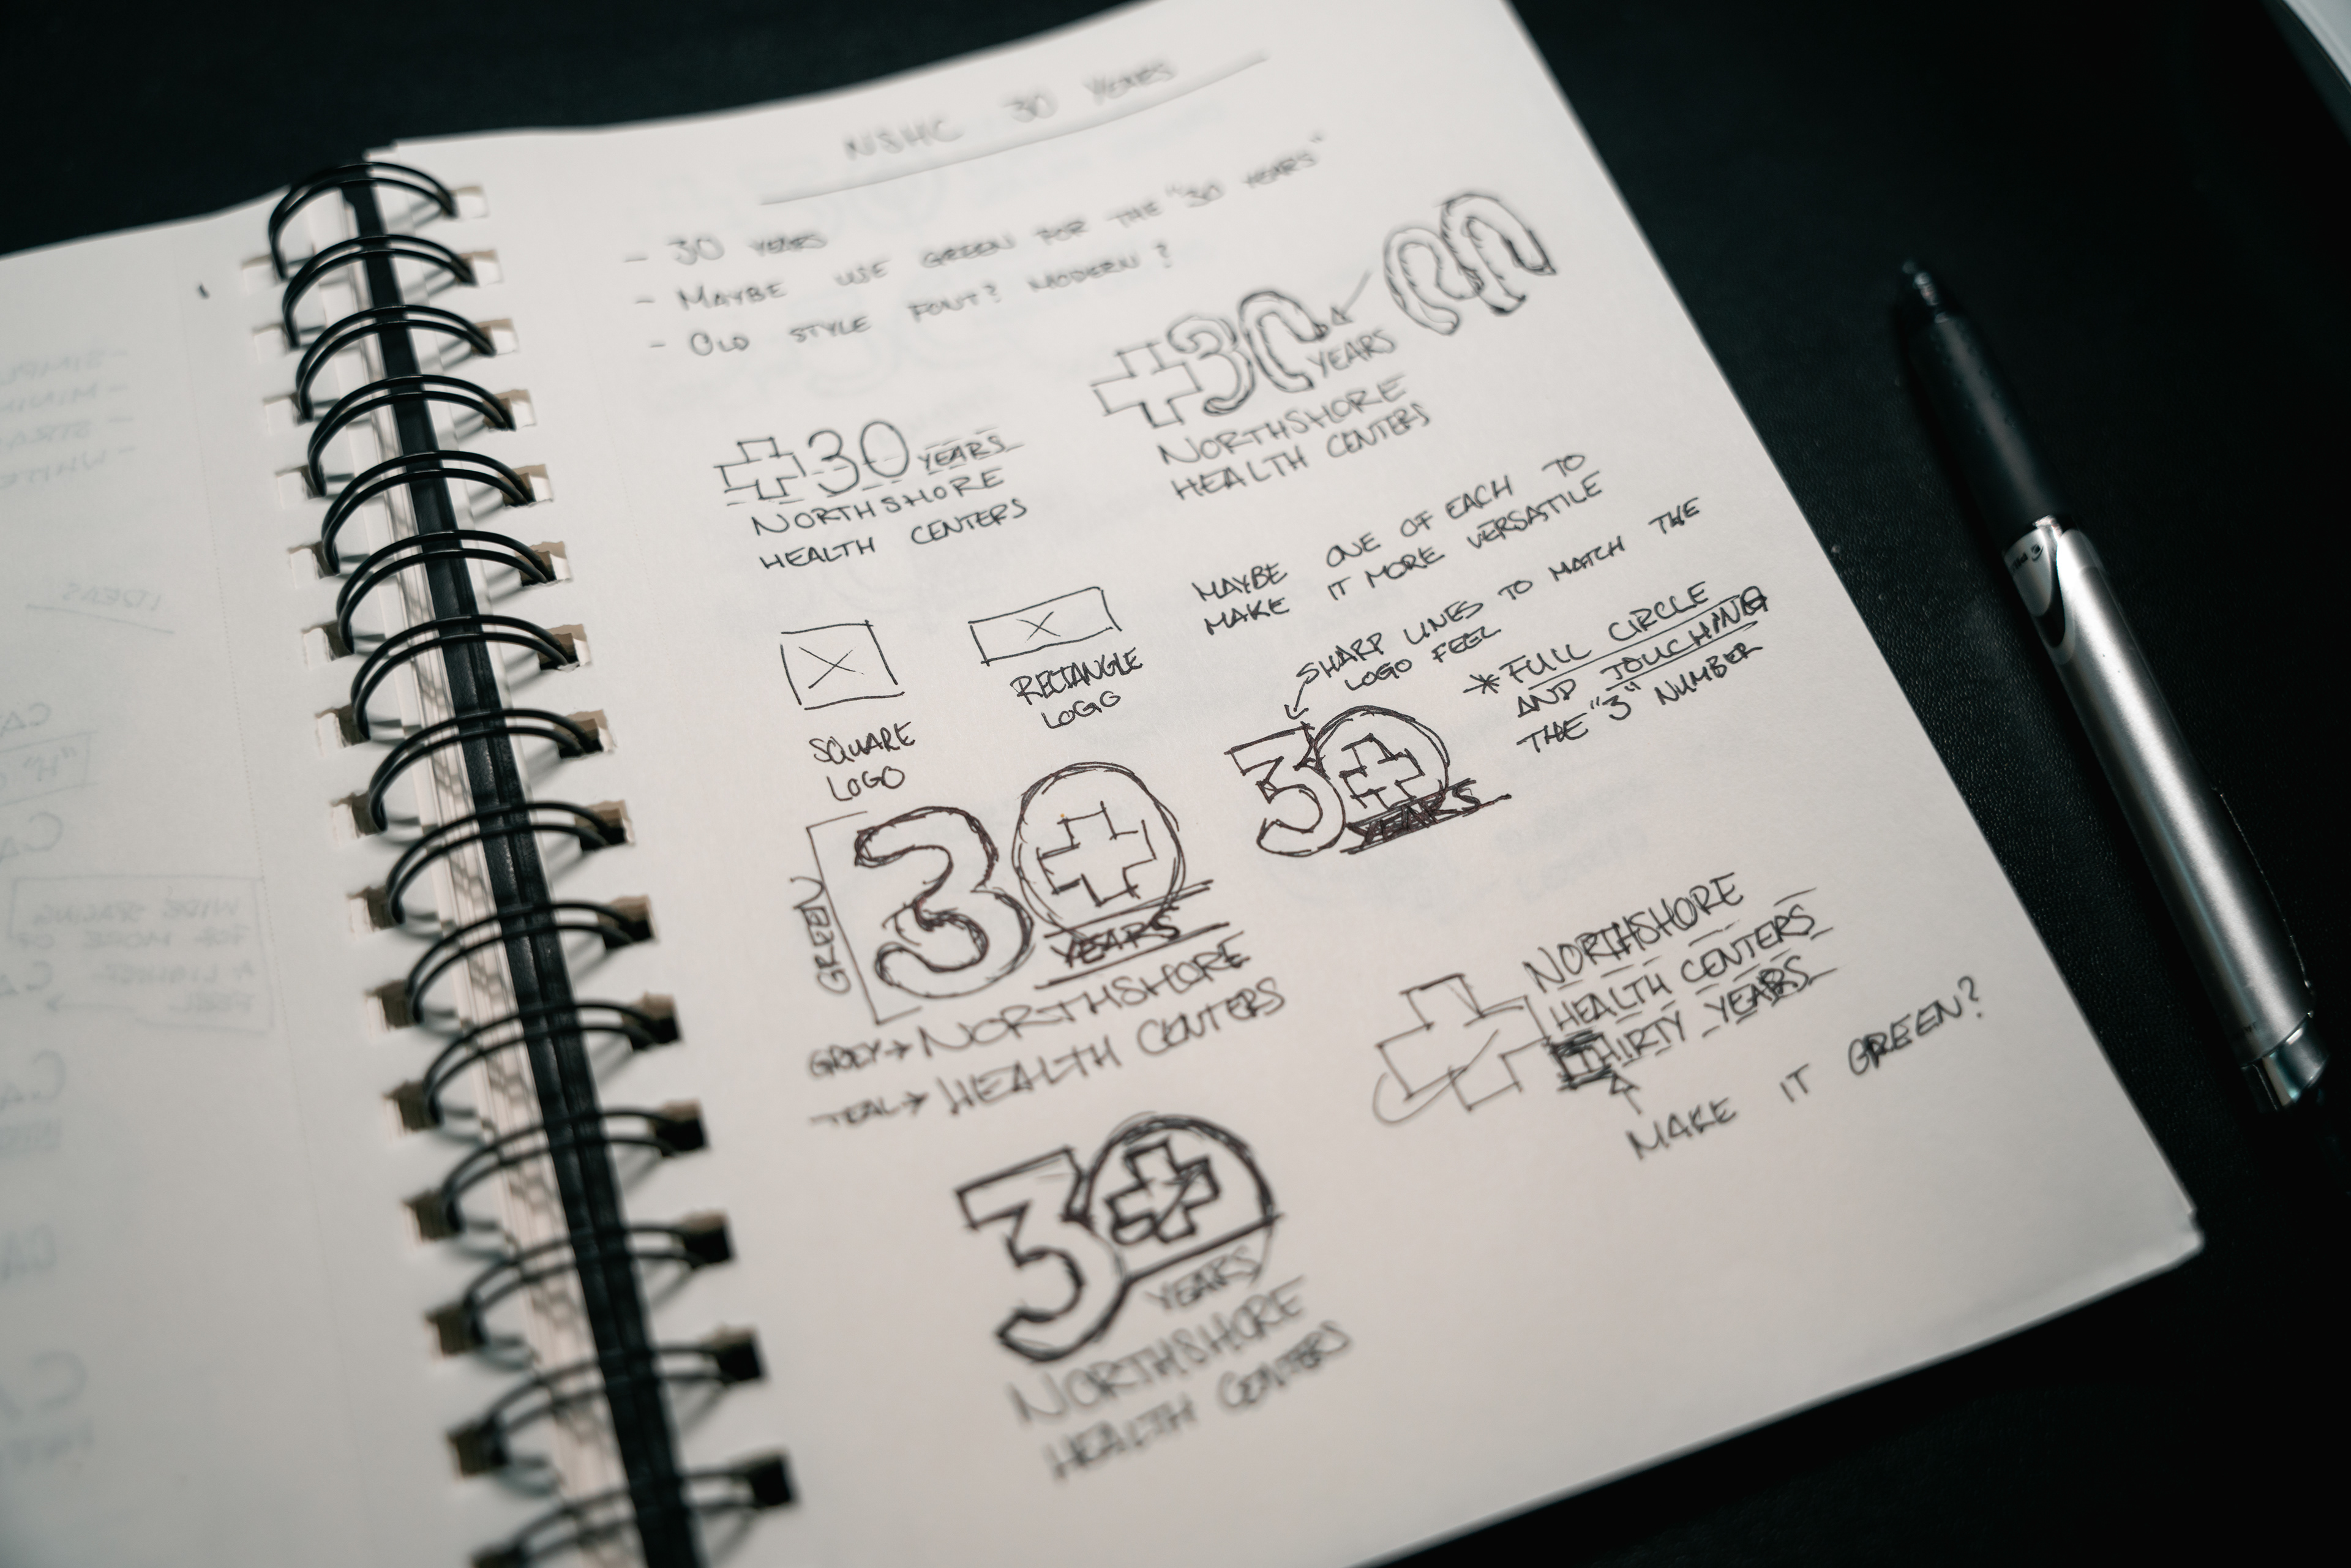 NSHC 30 YEARS
- 30 YEARS
- MAYBE USE GREEN FOR THE "30 YEARS"
- OLD STYLE FONT? MODERN?
+30 YEARS
NORTHSHORE
HEALTH CENTERS
+30 YEARS
NORTHSHORE
HEALTH CENTERS
MAYBE ONE OF EACH TO
MAKE IT MORE VERSATILE
SQUARE
LOGO
RECTANGLE
LOGO
SHARP LINES TO MATCH THE
LOGO FEEL
* FULL CIRCLE
AND TOUCHING
THE "3" NUMBER
30
YEARS
GREEN
30
YEARS
GREY → NORTHSHORE
TEAL → HEALTH CENTERS
NORTHSHORE
HEALTH CENTERS
THIRTY YEARS
MAKE IT GREEN?
30
YEARS
NORTHSHORE
HEALTH CENTERS
IDEAS
WIDE SPACING
FOR MORE OF
A LIGHTER
FEEL